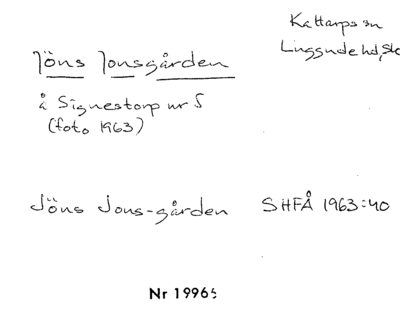 Kattarps sn
Luggude hd, Sk
Jöns Jonsgården
å Signestorp nr 5
(foto 1963)
Jöns Jons-gården SHFÅ 1963:40
Nr 19965